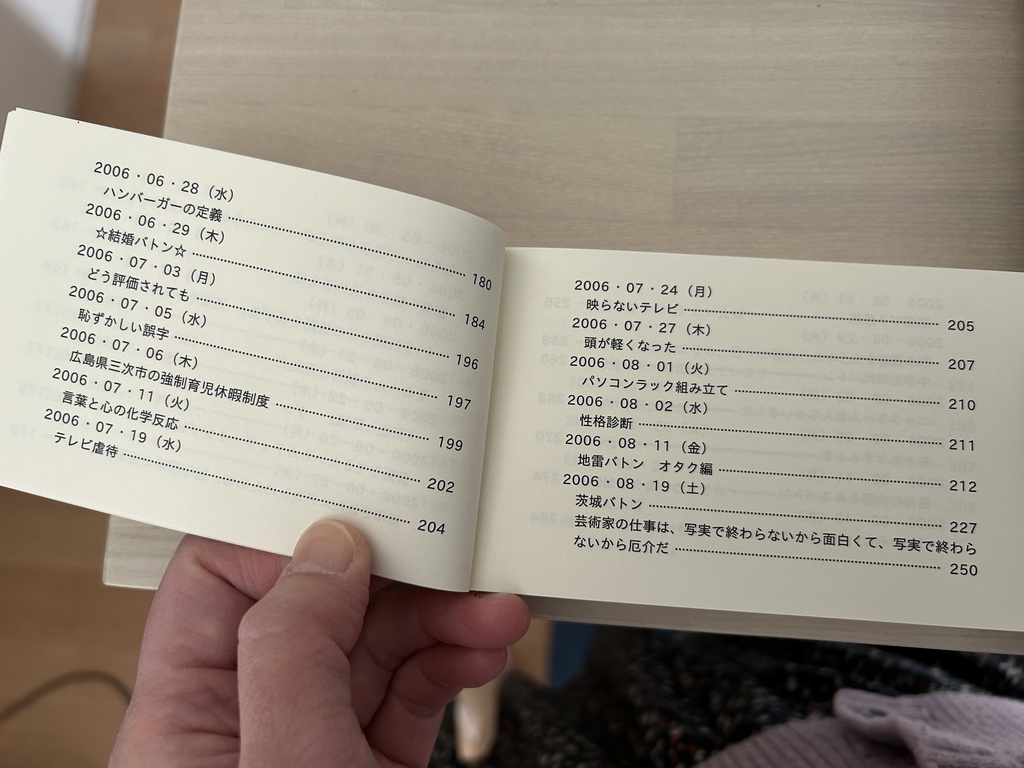 2006・06・28（水）
ハンバーガーの定義 180
2006・06・29（木）
☆結婚バトン☆ 184
2006・07・03（月）
どう評価されても 196
2006・07・05（水）
恥ずかしい誤字 197
2006・07・06（木）
広島県三次市の強制育児休暇制度 199
2006・07・11（火）
言葉と心の化学反応 202
2006・07・19（水）
テレビ虐待 204
2006・07・24（月）
映らないテレビ 205
2006・07・27（木）
頭が軽くなった 207
2006・08・01（火）
パソコンラック組み立て 210
2006・08・02（水）
性格診断 211
2006・08・11（金）
地雷バトン　オタク編 212
2006・08・19（土）
茨城バトン 227
芸術家の仕事は、写実で終わらないから面白くて、写実で終わら
ないから厄介だ 250